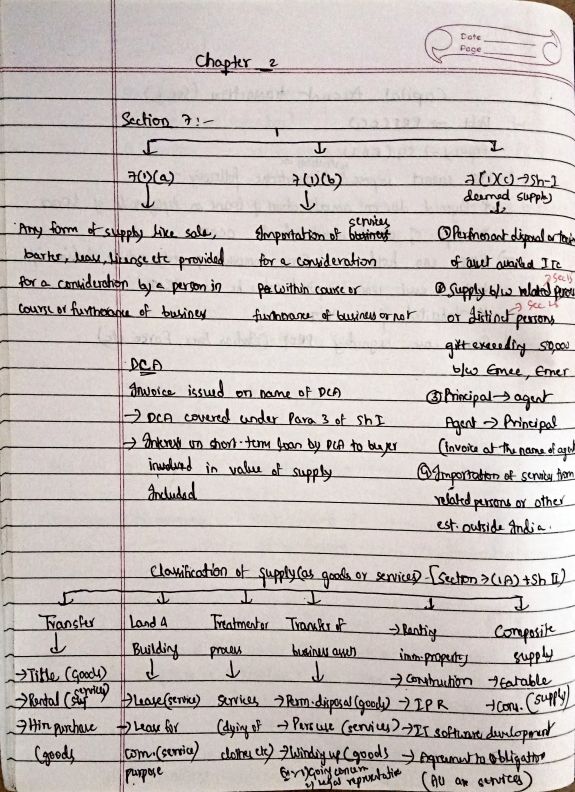 Date
Page
Chapter - 2
Section 7:-
7(1)(a)
Any form of supply like sale,
barter, lease, license etc provided
for a consideration by a person in
course or furtherance of business
7(1)(b)
services
Importation of business
for a consideration
within course or
furtherance of business or not
7(1)(c) → Sh-I
deemed supply
① Permenant disposal or
of asset availed ITC
→ Sec 15
② Supply b/w related
→ Sec 25
or distinct persons
gift exceeding 50,000
b/w Emee, Emer
③ Principal → agent
Agent → Principal
(Invoice at the name of agent
④ Importation of service from
related persons or other
est. outside India.
DCA
Invoice issued on name of DCA
→ DCA covered under Para 3 of Sh I
→ Interest on short-term loan by DCA to buyer
involved in value of supply
Included
Classification of supply (as goods or services) - [Section 7(1A) + Sh II)
Transfer
→ Title (Goods)
→ Rental (services)
→ Hire purchase
(goods
Land &
Building
→ Lease (service)
→ Lease for
com. (service)
purpose
Treatment or
process
services
(dying of
clothes etc)
Transfer of
business assets
→ Perm. disposal (goods)
→ Pers use (services)
→ Winding up (goods
Ex → 1) Going concern
2) legal representative
→ Renting
imm. property
→ Construction
→ IPR
→ IT software development
→ Agreement to obligation
(All are services)
Composite
supply
→ Eatable
→ Con. (supply)